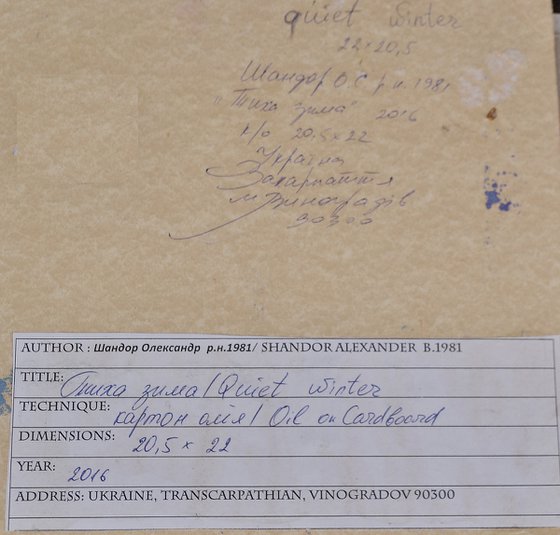 quiet winter
22×20,5
Шандор О.С р.н. 1981
"Тиха зима" 2016
к/о 20,5×22
Україна
Закарпаття
м Виноградів
90300
AUTHOR : Шандор Олександр р.н.1981/ SHANDOR ALEXANDER B.1981
TITLE: Тиха зима / Quiet winter
TECHNIQUE: картон олія / Oil on Cardboard
DIMENSIONS: 20,5 × 22
YEAR: 2016
ADDRESS: UKRAINE, TRANSCARPATHIAN, VINOGRADOV 90300